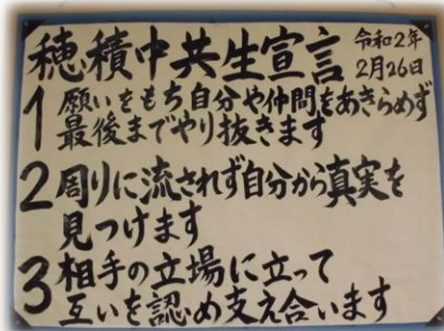 穂積中共生宣言
令和2年
2月26日
1 願いをもち自分や仲間をあきらめず
最後までやり抜きます
2 周りに流されず自分から真実を
見つけます
3 相手の立場に立って
互いを認め支え合います